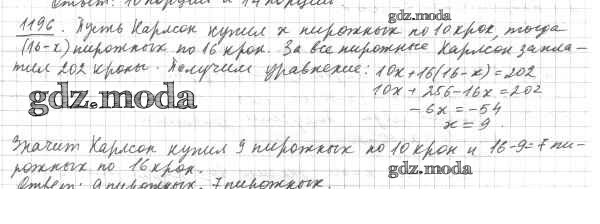 Ответ: 10 порций и 14 порций.
gdz.moda
1196. Пусть Карлсон купил x пирожных по 10 крон, тогда
(16-x) пирожных по 16 крон. За все пирожные Карлсон запла-
тил 202 кроны. Получим уравнение: 10x+16(16-x)=202
10x+256-16x=202
gdz.moda
-6x=-54
x=9
Значит Карлсон купил 9 пирожных по 10 крон и 16-9=7 пи-
рожных по 16 крон.
gdz.moda
Ответ: 9 пирожных, 7 пирожных.